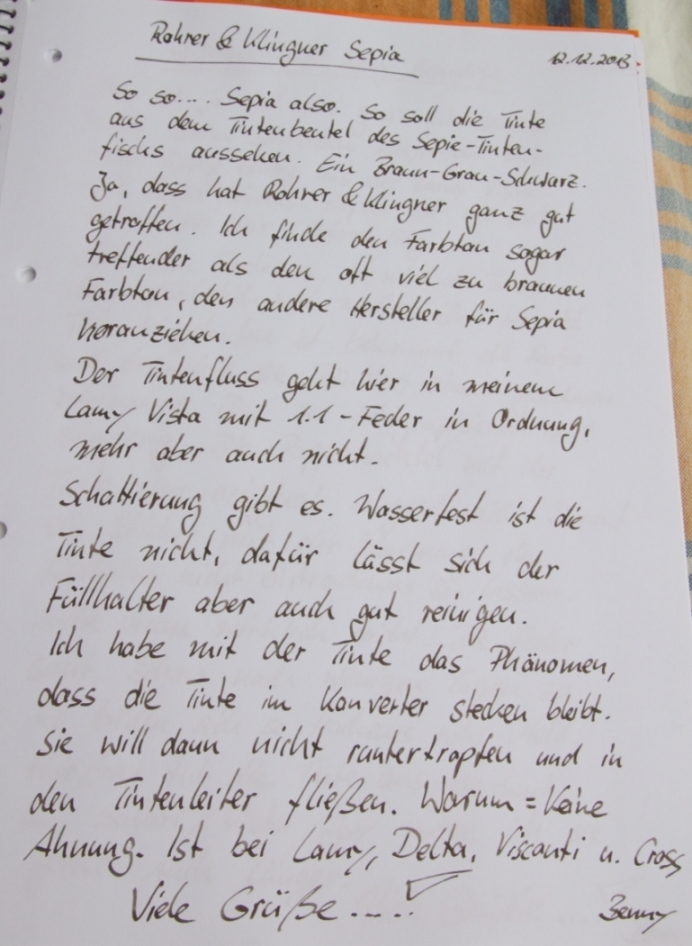 Rohrer & Klingner Sepia 12.12.2013
So so.... Sepia also. So soll die Tinte
aus dem Tintenbeutel des Sepie-Tinten-
fischs aussehen. Ein Braun-Grau-Schwarz.
Ja, dass hat Rohrer & Klingner ganz gut
getroffen. Ich finde den Farbton sogar
treffender als den oft viel zu braunen
Farbton, den andere Hersteller für Sepia
heranziehen.
Der Tintenfluss geht hier in meinem
Lamy Vista mit 1.1-Feder in Ordnung,
mehr aber auch nicht.
Schattierung gibt es. Wasserfest ist die
Tinte nicht, dafür lässt sich der
Füllhalter aber auch gut reinigen.
Ich habe mit der Tinte das Phänomen,
dass die Tinte im Konverter stecken bleibt.
Sie will dann nicht runtertropfen und in
den Tintenleiter fließen. Warum = Keine
Ahnung. Ist bei Lamy, Delta, Visconti u. Cross
Viele Grüße....! Benny